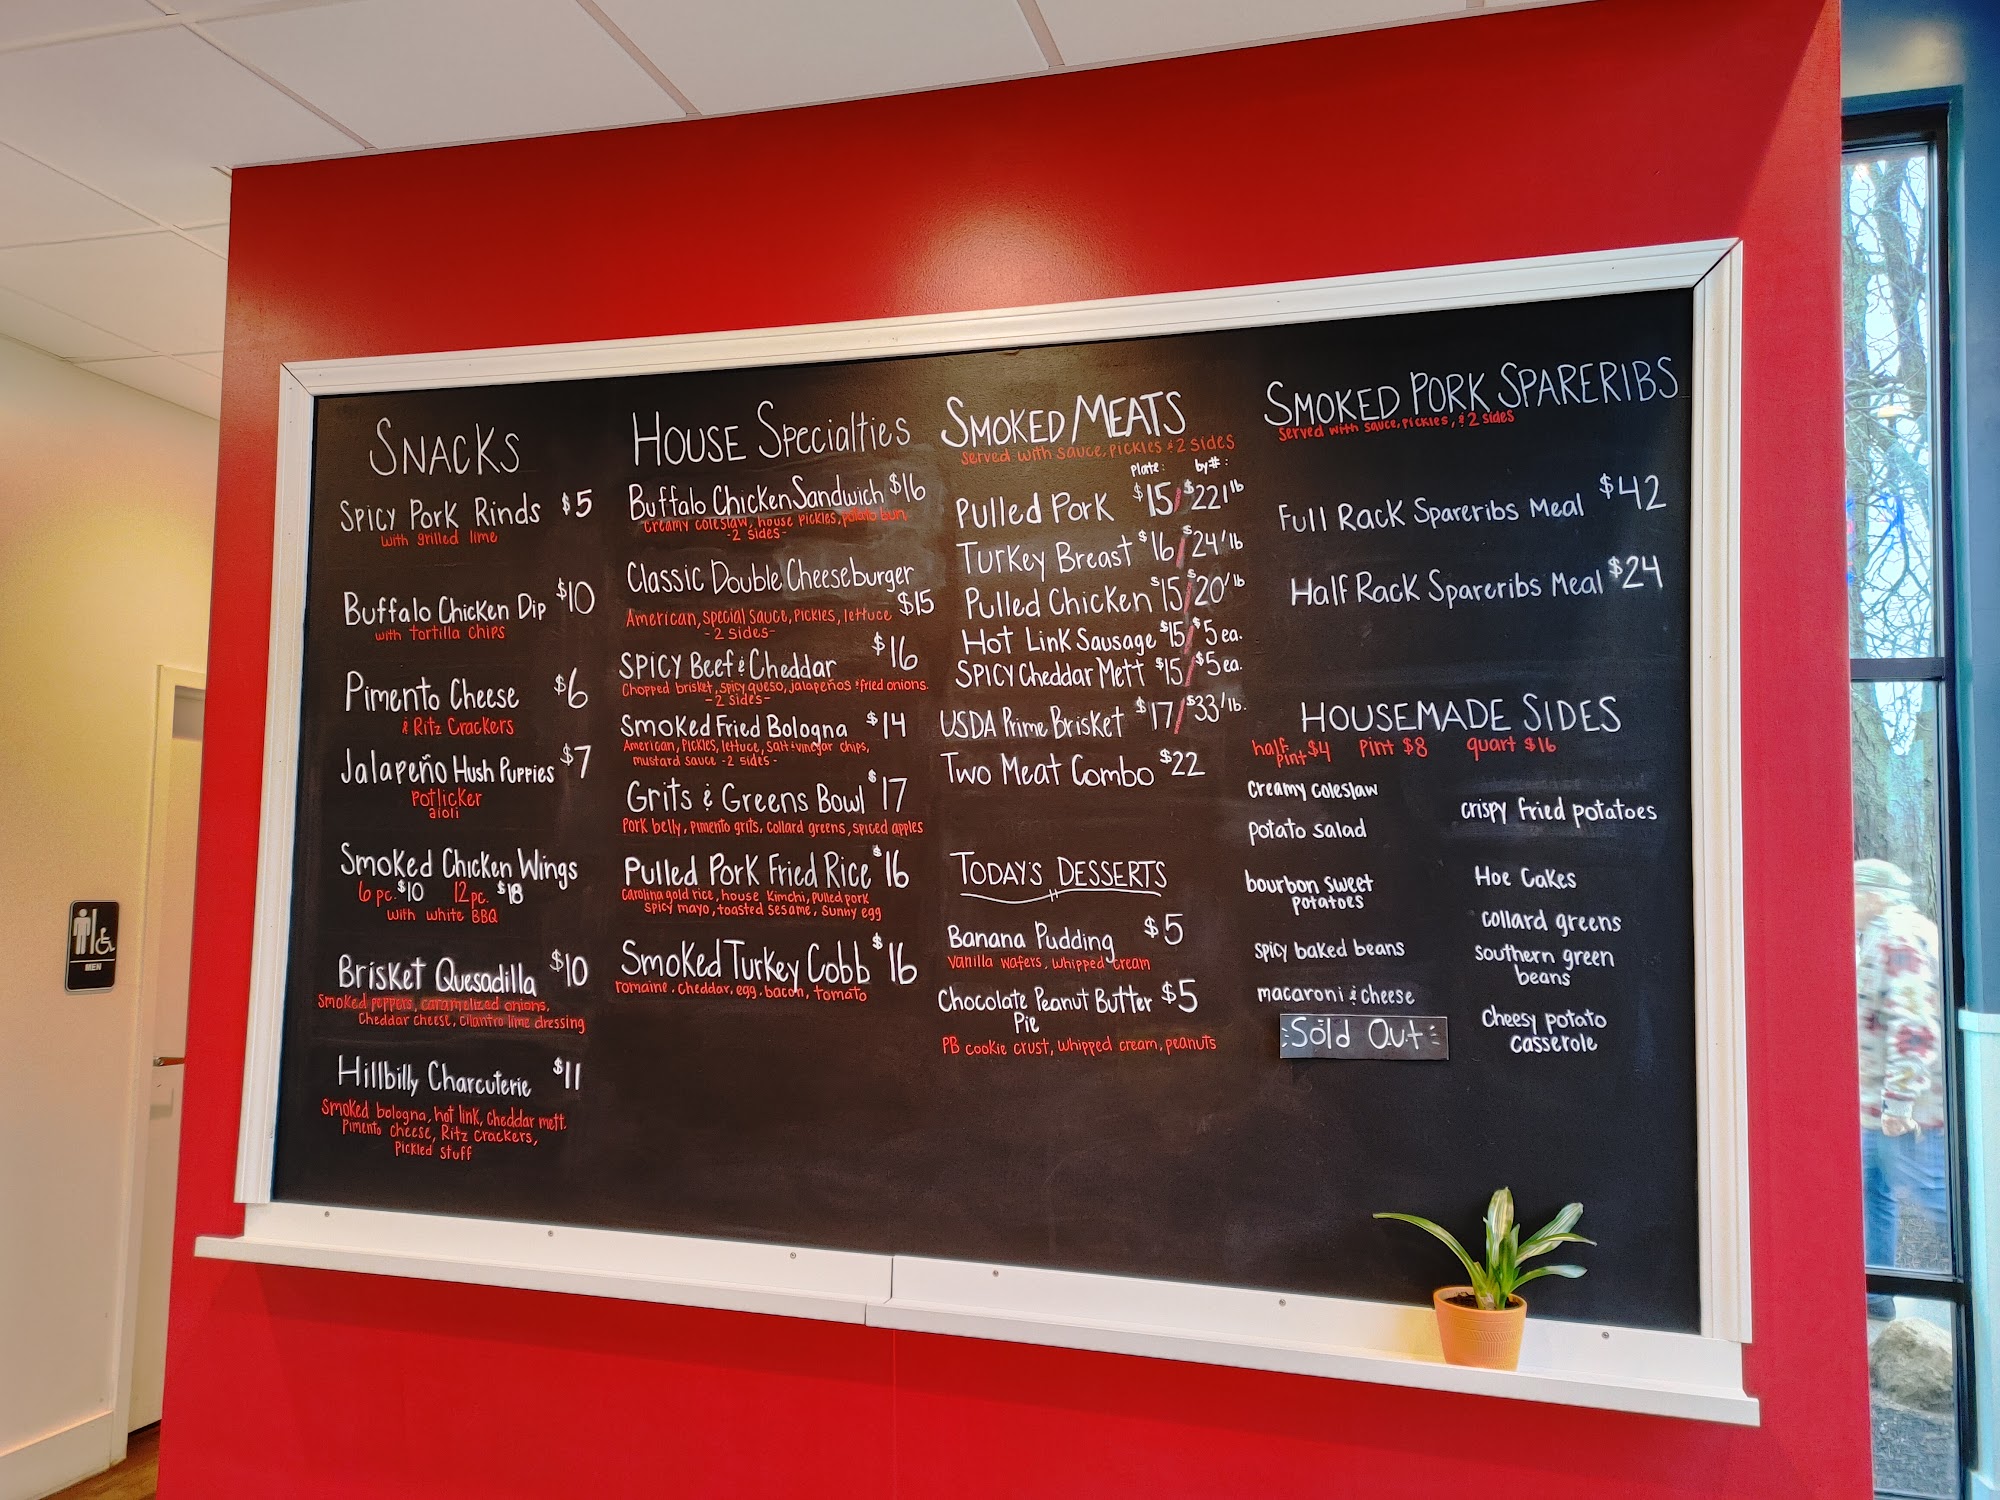 SNACKS
Spicy Pork Rinds $5
with grilled lime
Buffalo Chicken Dip $10
with tortilla chips
Pimento Cheese $6
& Ritz Crackers
Jalapeño Hush Puppies $7
Potlicker
aioli
Smoked Chicken Wings
6 pc. $10 12 pc. $18
with white BBQ
Brisket Quesadilla $10
Smoked peppers, caramelized onions,
Cheddar cheese, cilantro lime dressing
Hillbilly Charcuterie $11
Smoked bologna, hot link, cheddar mett,
Pimento cheese, Ritz Crackers,
Pickled stuff
HOUSE Specialties
Buffalo Chicken Sandwich $16
creamy coleslaw, house pickles, potato bun,
-2 sides-
Classic Double Cheeseburger
$15
American, special sauce, pickles, lettuce
-2 sides-
$16
SPICY Beef & Cheddar
Chopped brisket, spicy queso, jalapeños & fried onions.
-2 sides-
Smoked Fried Bologna $14
American, pickles, lettuce, salt & vinegar chips,
mustard sauce -2 sides-
Grits & Greens Bowl $17
Pork belly, pimento grits, collard greens, spiced apples
Pulled Pork Fried Rice $16
Carolina gold rice, house kimchi, pulled pork
spicy mayo, toasted sesame, sunny egg
Smoked Turkey Cobb $16
romaine, cheddar, egg, bacon, tomato
SMOKED MEATS
served with sauce, pickles & 2 sides
plate: by #:
Pulled Pork $15/$22/lb
Turkey Breast $16/$24/lb
Pulled Chicken $15/$20/lb
Hot Link Sausage $15/$5 ea.
SPICY Cheddar Mett $15/$5 ea.
USDA Prime Brisket $17/$33/lb.
Two Meat Combo $22
TODAY'S DESSERTS
Banana Pudding $5
Vanilla wafers, whipped cream
Chocolate Peanut Butter $5
Pie
PB cookie crust, whipped cream, peanuts
SMOKED PORK SPARERIBS
served with sauce, pickles, & 2 sides
Full Rack Spareribs Meal $42
Half Rack Spareribs Meal $24
HOUSEMADE SIDES
half-pint $4 Pint $8 quart $16
creamy coleslaw
potato salad
bourbon sweet
potatoes
spicy baked beans
macaroni & cheese
Sold Out
crispy fried potatoes
Hoe Cakes
collard greens
southern green
beans
Cheesy potato
casserole
MEN